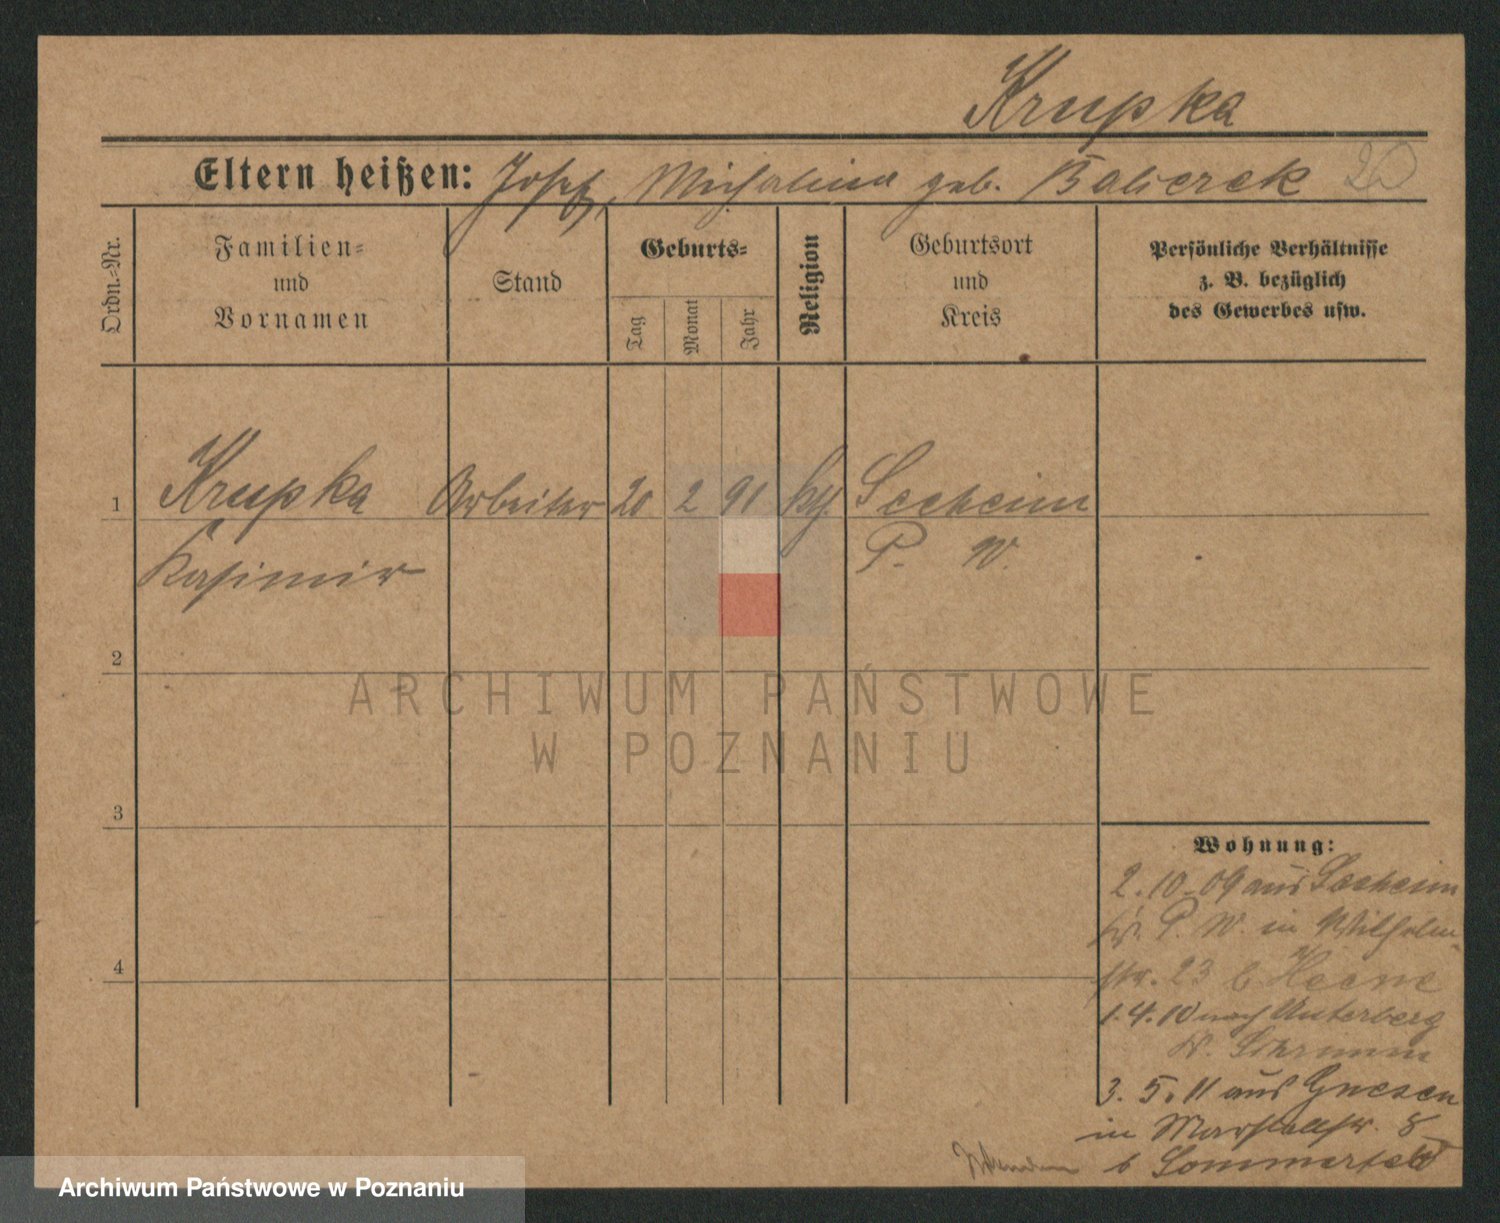 Krupka
Eltern heißen: Josef, Michalina geb. Balicrek 20
Ordn.-Nr.
Familien-
und
Vornamen
Stand
Geburts-
Tag
Monat
Jahr
Religion
Geburtsort
und
Kreis
Persönliche Verhältnisse
z. B. bezüglich
des Gewerbes usw.
1 Krupka Arbeiter 20 2 91 Seeheim
Kasimir P. W.
2
3
4
Wohnung:
2.10.09 aus Seeheim
Kr. P. W. in Wilhelm-
str. 23 b. Heene
1.4.10 nach Unterberg
3.5.11 aus Gnesen
in Marstallstr. 8
b Sommerfeld
ARCHIWUM PAŃSTWOWE
W POZNANIU
Archiwum Państwowe w Poznaniu